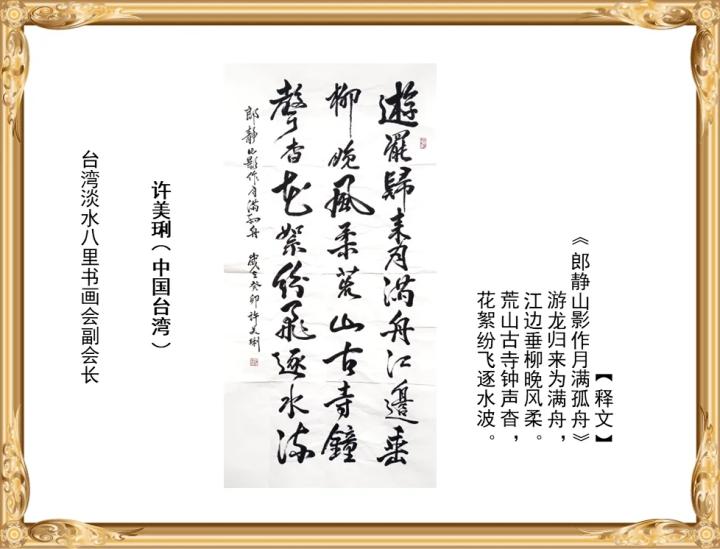 【释文】
《郎静山影作月满孤舟》
游龙归来为满舟，
江边垂柳晚风柔。
荒山古寺钟声杳，
花絮纷飞逐水波。
遊罷歸來月满舟江邊垂
柳晚風柔荒山古寺鐘
聲杳花絮纷飛逐水流
郎静山影作月满孤舟 歲在癸卯许美琍
许美琍（中国台湾）
台湾淡水八里书画会副会长